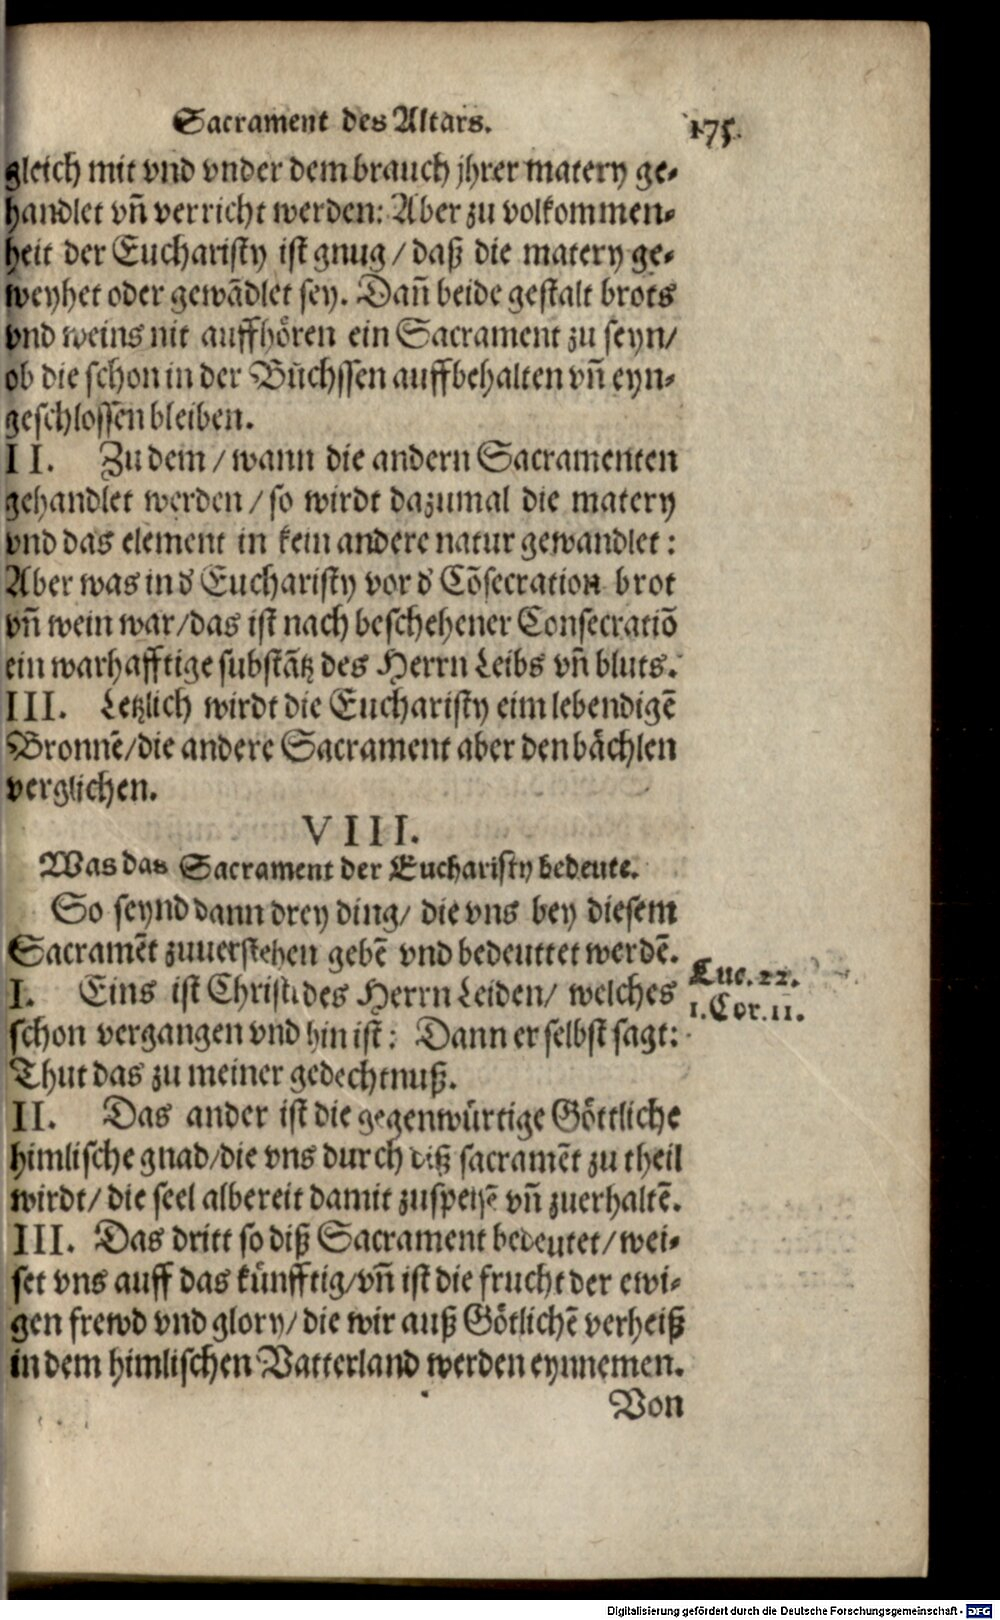 Sacrament des Altars.
175.
gleich mit vnd vnder dem brauch jhrer matery ge-
handlet vn̄ verricht werden: Aber zu volkommen-
heit der Eucharisty ist gnug / daß die matery ge-
weyhet oder gewādlet sey. Dan̄ beide gestalt brots
vnd weins nit auffhören ein Sacrament zu seyn/
ob die schon in der Büchssen auffbehalten vn̄ eyn-
geschlossen bleiben.
II. Zu dem / wann die andern Sacramenten
gehandlet werden / so wirdt dazumal die matery
vnd das element in kein andere natur gewandlet:
Aber was in d' Eucharisty vor d' Cōsecration brot
vn̄ wein war/das ist nach beschehener Consecratiō
ein warhafftige substātz des Herrn Leibs vn̄ bluts.
III. Letzlich wirdt die Eucharisty eim lebendigē
Bronnē/die andere Sacrament aber den bächlen
verglichen.
VIII.
Was das Sacrament der Eucharisty bedeute.
So seynd dann drey ding/ die vns bey diesem
Sacramēt zuuerstehen gebē vnd bedeuttet werdē.
I. Eins ist Christi des Herrn Leiden/ welches
schon vergangen vnd hin ist: Dann er selbst sagt:
Thut das zu meiner gedechtnuß.
Luc. 22.
1. Cor. 11.
II. Das ander ist die gegenwürtige Göttliche
himlische gnad/die vns durch diß sacramēt zu theil
wirdt/ die seel albereit damit zuspeisē vn̄ zuerhaltē.
III. Das dritt so diß Sacrament bedeutet/wei-
set vns auff das künfftig/vn̄ ist die frucht der ewi-
gen frewd vnd glory/die wir auß Götlichē verheiß
in dem himlischen Vatterland werden eynnemen.
Von
Digitalisierung gefördert durch die Deutsche Forschungsgemeinschaft - DFG